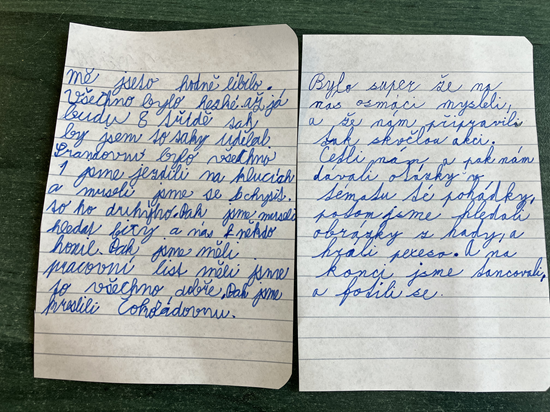 Mě jseto hodně líbilo.
Všechno bylo heské. až já
budu 8 třídě tak
by jsem to taky udělal.
Srandovní bylo všechno
1 jsme jezdili na klucích
a museli jsme se
toho druhýho. Pak jsme museli
hledat fixy a nás někso
honil. Pak jsme měli
pracovní list měli jsme
to všechno dobře. Pak jsme
kreslili Čokoládovnu.
Bylo super že na
nás osmáci mysleli,
a že nám připravili
tak skvělou akci.
Četli nám a pak nám
dávali otázky v
tématu té pohádky,
potom jsme hledali
obrázky z hady, a
hráli pexeso. A na
konci jsme tancovali,
a fotili se.